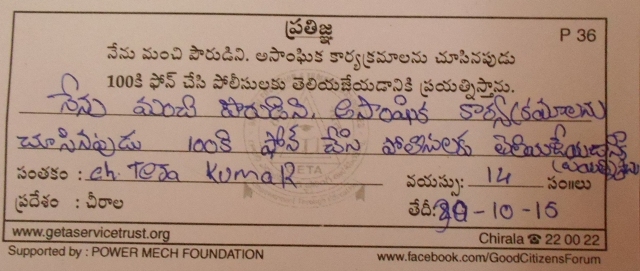 ప్రతిజ్ఞ
P 36
నేను మంచి పౌరుడిని. అసాంఘిక కార్యక్రమాలను చూసినపుడు
100కి ఫోన్ చేసి పోలీసులకు తెలియజేయడానికి ప్రయత్నిస్తాను.
నేను మంచి పౌరుడిని. అసాంఘిక కార్యక్రమాలను
చూసినపుడు 100కి ఫోన్ చేసి పోలీసులకు తెలియజేయడానికి
ప్రయత్నిస్తాను
సంతకం : ch. Teja Kumar వయస్సు: 14 సం॥లు
ప్రదేశం : చీరాల తేదీ: -10-15
www.getaservicetrust.org Chirala ☎ 22 00 22
Supported by : POWER MECH FOUNDATION www.facebook.com/GoodCitizensForum